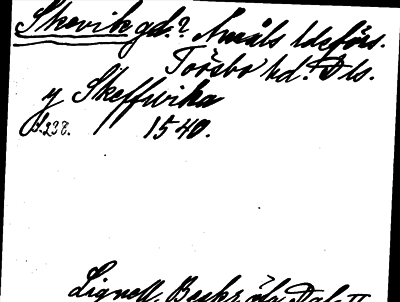 Skovik gd.? Åmåls ldsförs.
Tössbo hd. Dls.
y Skeffwika
S.238. 1540.
Lignell, Beskr. öfv. Dal II